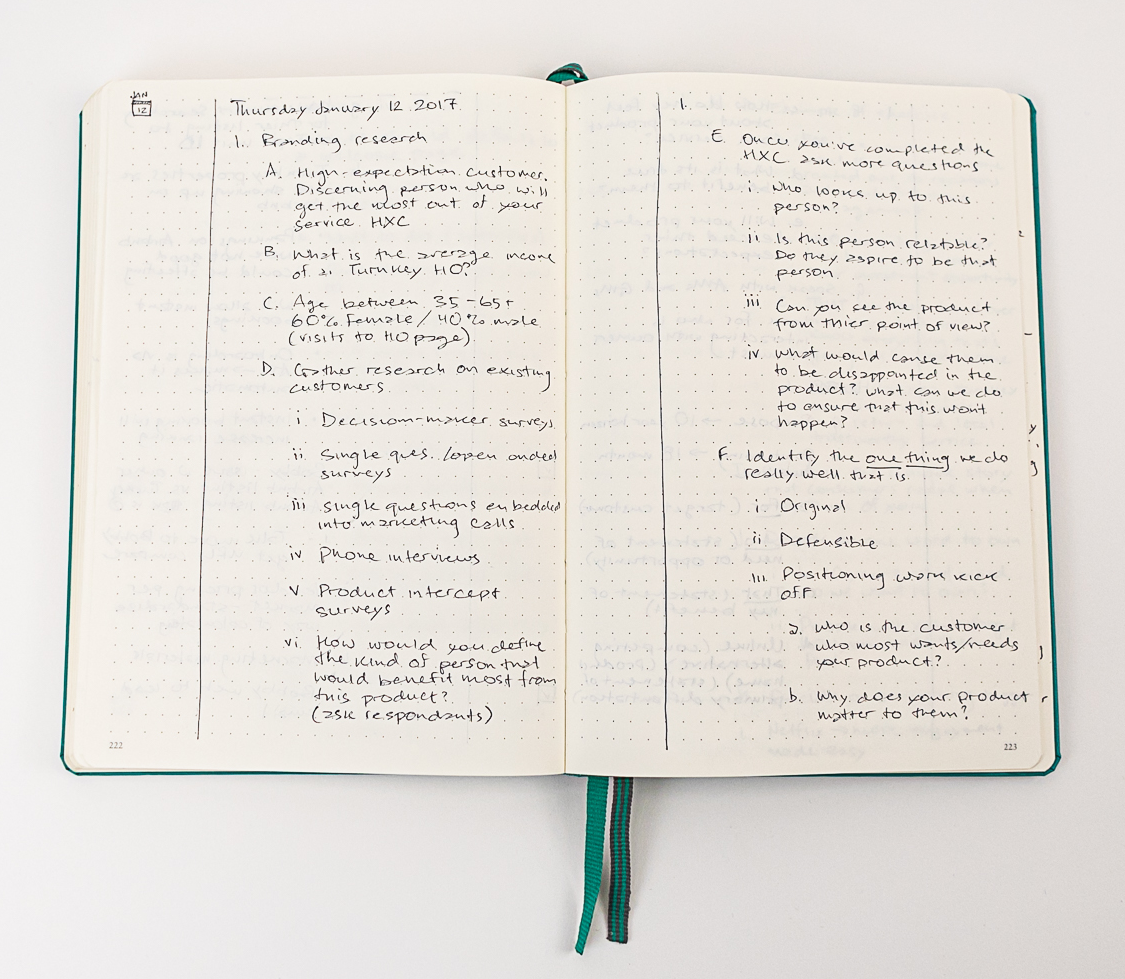 JAN
12
Thursday January 12 2017
1. Branding research
A. High-expectation customer.
Discerning person who will
get the most out of your
service HXC
B. What is the average income
of a Turnkey HO?
C. Age between 35-65+
60% Female / 40% male
(visits to HO page).
D. Gather research on existing
customers.
i Decision-maker surveys
ii Single ques. /open onded
surveys
iii single questions embedded
into marketing calls
iv Phone interviews
v Product intercept
surveys
vi How would you define
the kind of person that
would benefit most from
this product?
(ask respondants)
222
1.
E. Once you've completed the
HXC ask more questions
i who looks up to this
person?
ii Is this person relatable?
Do they aspire to be that
person
iii Can you see the product
from thier point of view?
iv what would cause them
to be disappointed in the
product? what can we do
to ensure that this won't
happen?
F. Identify the one thing we do
really well that is
i Original
ii Defensible
iii Positioning work kick
off
a. who is the customer
who most wants/needs
your product?
b. Why does your product
matter to them?
223